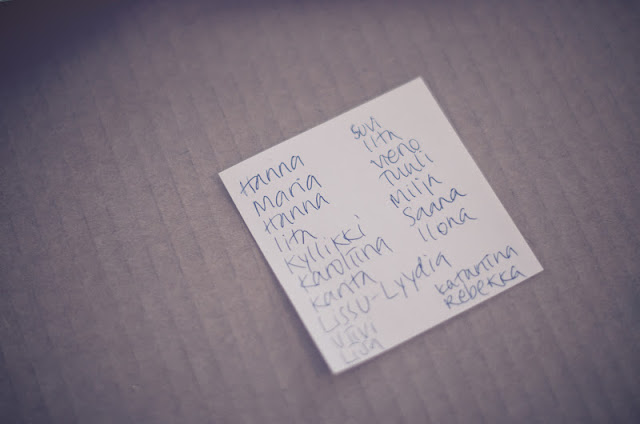 Hanna
Maria
Hanna
Iita
Kyllikki
Karoliina
Kanta
Lissu-Lyydia
Viivi
Lija
Suvi
Ilta
Vieno
Tuuli
Milja
Saana
Ilona
Katariina
Rebekka